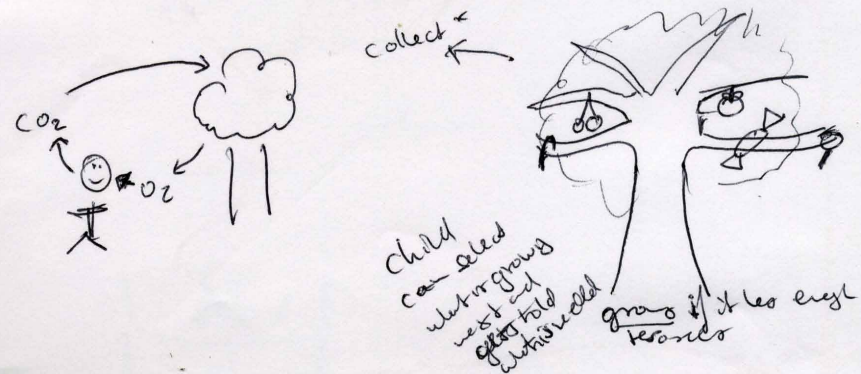 CO2
O2
collect *
child
can select
what is growing
next and
gets told
what is
grows if it has enough